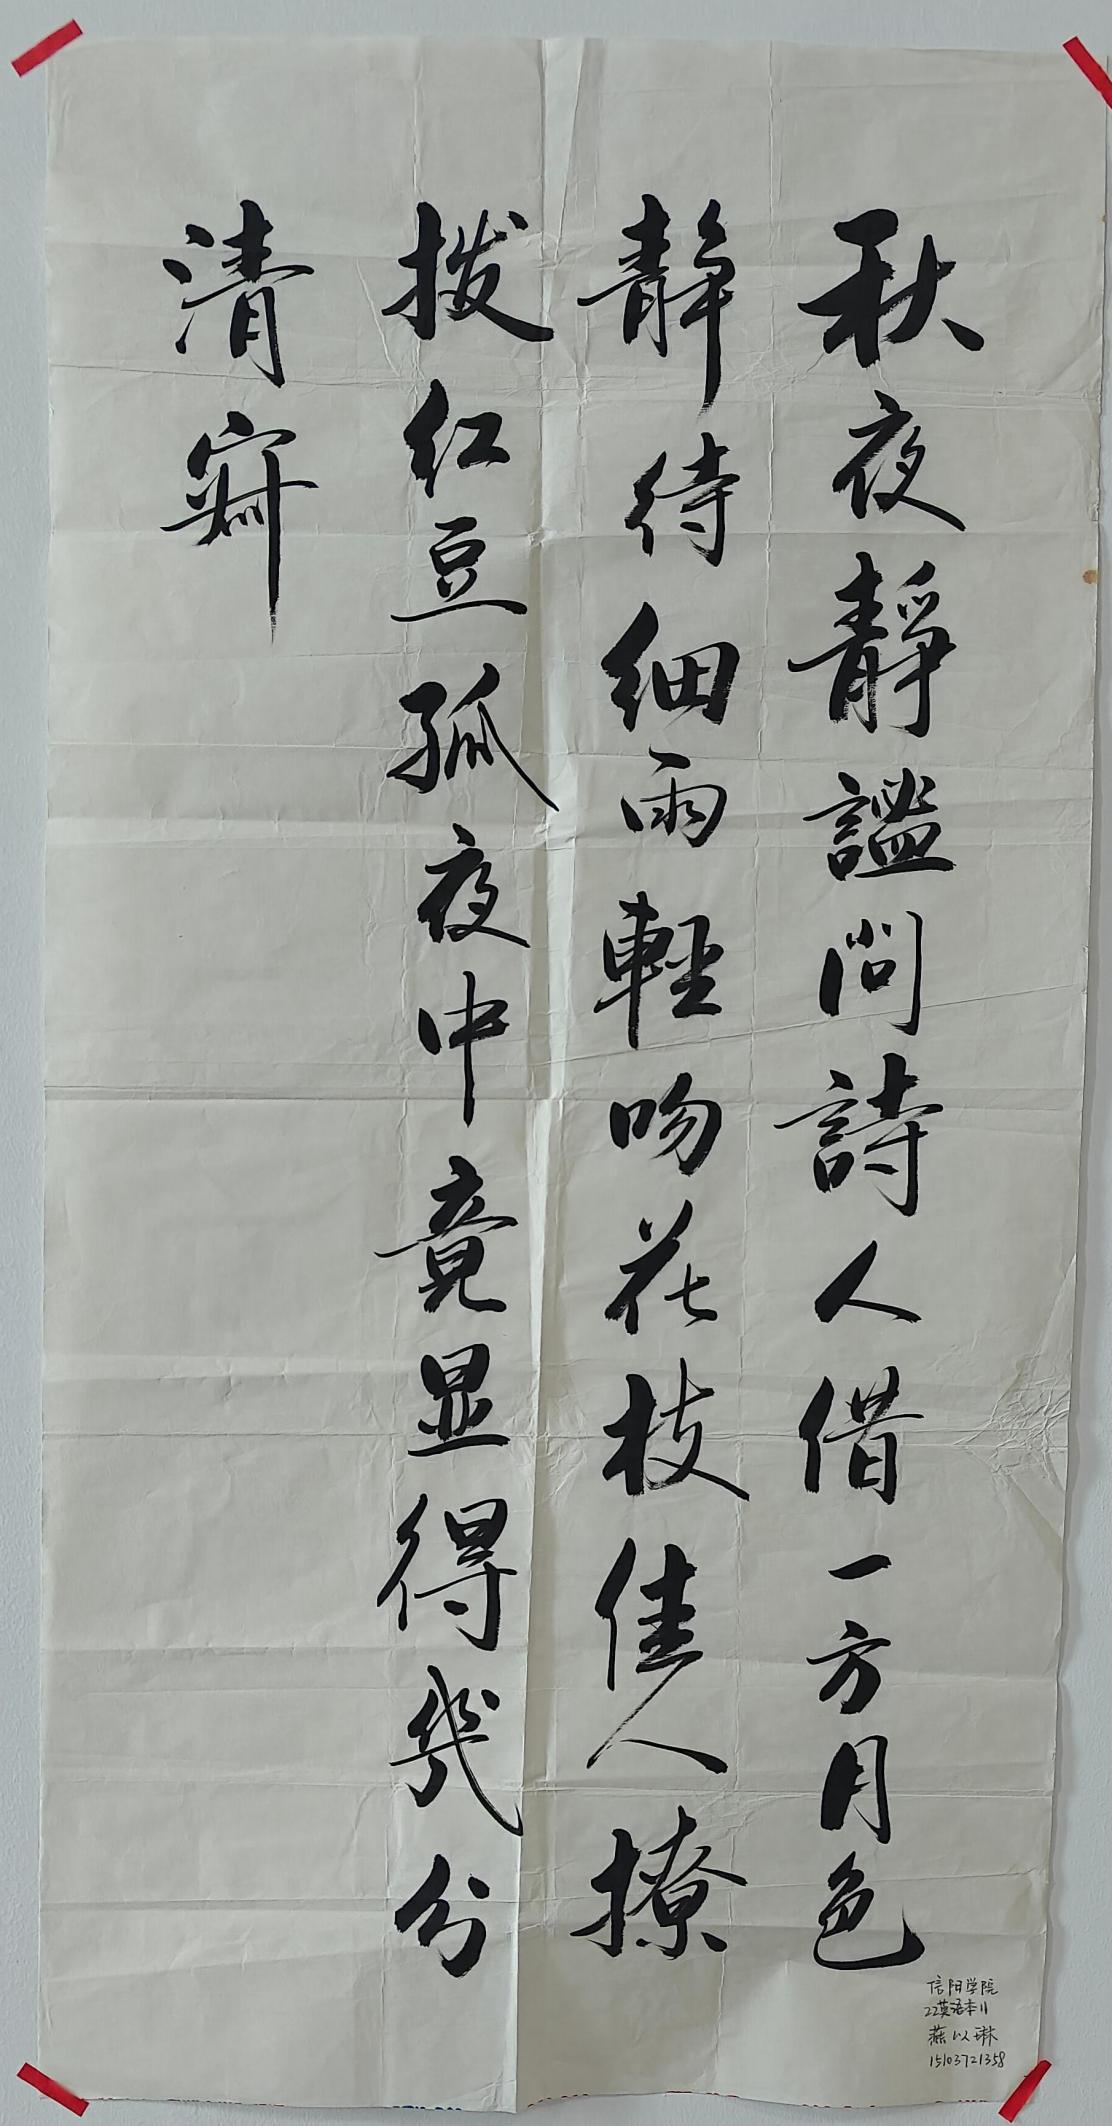 秋夜靜謐問詩人借一方月色
靜待細雨輕吻花枝佳人撩
拨红豆孤夜中竟显得幾分
清寂
信阳学院
22英语本11
燕以琳
15103721358